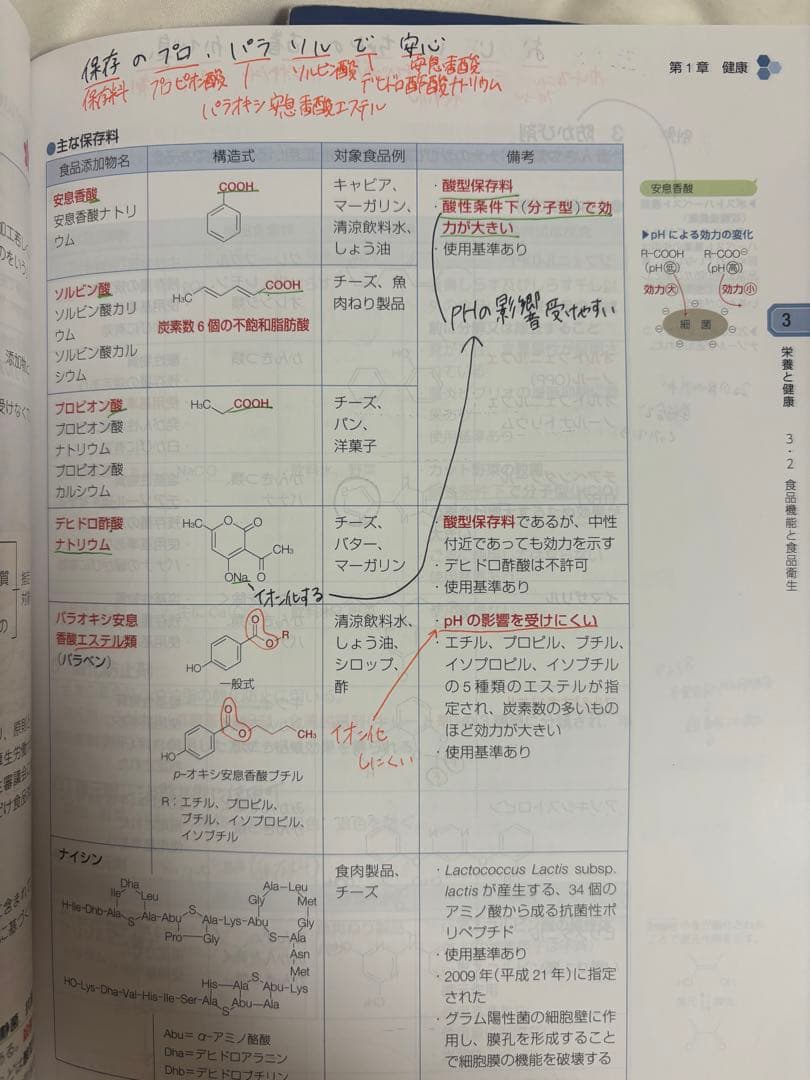 保存のプロ、パラソルで安心
保存料 プロピオン酸 ソルビン酸 安息香酸
デヒドロ酢酸ナトリウム
パラオキシ安息香酸エステル
第1章 健康
●主な保存料
食品添加物名 構造式 対象食品例 備考
安息香酸
安息香酸ナトリ
ウム
COOH
キャビア、
マーガリン、
清涼飲料水、
しょう油
・酸型保存料
・酸性条件下(分子型)で効
力が大きい
・使用基準あり
ソルビン酸
ソルビン酸カリ
ウム
ソルビン酸カル
シウム
H₃C COOH
炭素数6個の不飽和脂肪酸
チーズ、魚
肉ねり製品
pHの影響受けやすい
プロピオン酸
プロピオン酸
ナトリウム
プロピオン酸
カルシウム
H₃C COOH
チーズ、
パン、
洋菓子
デヒドロ酢酸
ナトリウム
H₃C O O
CH₃
ONa O
イオン化する
チーズ、
バター、
マーガリン
・酸型保存料であるが、中性
付近であっても効力を示す
・デヒドロ酢酸は不許可
・使用基準あり
パラオキシ安息
香酸エステル類
(パラベン)
O
O R
HO
一般式
O
O CH₃
HO
p-オキシ安息香酸ブチル
R:エチル、プロピル、
ブチル、イソプロピル、
イソブチル
清涼飲料水、
しょう油、
シロップ、
酢
イオン化
しにくい
・pHの影響を受けにくい
・エチル、プロピル、ブチル、
イソプロピル、イソブチル
の5種類のエステルが指
定され、炭素数の多いもの
ほど効力が大きい
・使用基準あり
ナイシン
Dha
Ile Leu
H-Ile-Dhb-Ala S Ala-Abu S Ala-Lys-Abu
Pro Gly
Ala-Leu
Gly Met
Gly
S Ala
Asn
Met
His-Ala S Abu-Lys
HO-Lys-Dha-Val-His-Ile-Ser-Ala S Abu-Ala
Abu=α-アミノ酪酸
Dha=デヒドロアラニン
Dhb=デヒドロブチリン
食肉製品、
チーズ
・Lactococcus Lactis subsp.
lactisが産生する、34個の
アミノ酸から成る抗菌性ポ
リペプチド
・使用基準あり
・2009年(平成21年)に指定
された
・グラム陽性菌の細胞壁に作
用し、膜孔を形成すること
で細胞膜の機能を破壊する
安息香酸
▶pHによる効力の変化
R-COOH R-COO⊖
(pH低) (pH高)
効力大 効力小
細菌
3
栄養と健康
3・2 食品機能と食品衛生